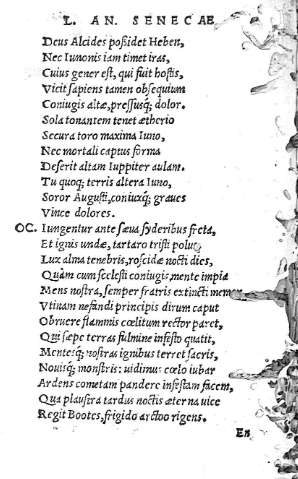 L. AN. SENECAE
Deus Alcides poßidet Heben,
Nec Iunonis iam timet iras,
Cuius gener est, qui fuit hostis,
Vicit sapiens tamen obsequium
Coniugis altæ, pressusq; dolor.
Sola tonantem tenet ætherio
Secura toro maxima Iuno,
Nec mortali captus forma
Deserit altam Iuppiter aulam.
Tu quoq; terris altera Iuno,
Soror Augusti, coniuxq; graues
Vince dolores.
OC. Iungentur ante sæua syderibus freta,
Et ignis undæ, tartaro tristi polus,
Lux alma tenebris, roscidæ nocti dies,
Quàm cum scelesti coniugis, mente impia
Mens nostra, semper fratris extincti memor
Vtinam nefandi principis dirum caput
Obruere flammis cœlitum rector paret,
Qui sæpe terras fulmine infesto quatit,
Mentesq; nostras ignibus terret sacris,
Nouisq; monstris: uidimus cœlo iubar
Ardens cometam pandere infestam facem,
Qua plaustra tardus noctis æterna uice
Regit Bootes, frigido arctoo rigens.
En